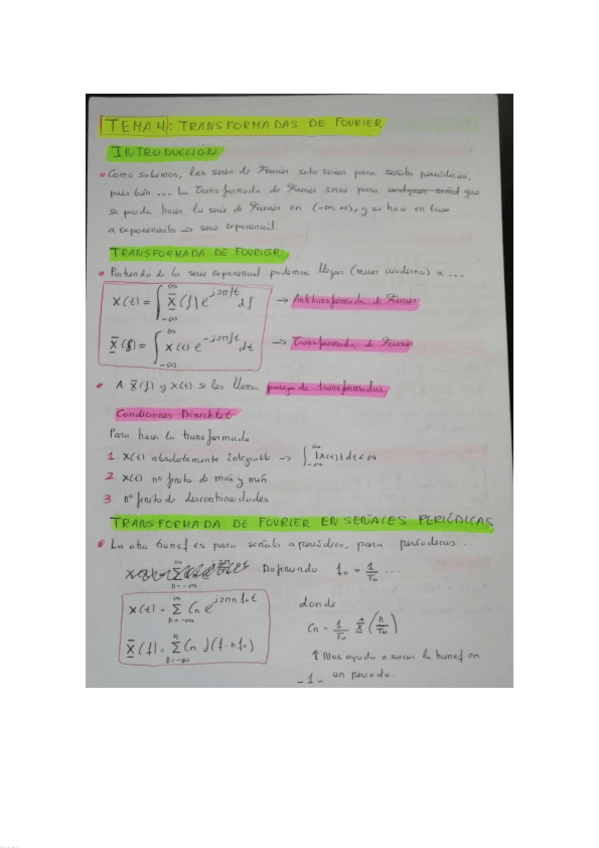 TEMA 4: TRANSFORMADAS DE FOURIER
INTRODUCCIÓN
• Como sabemos, las series de Fourier solo sirven para señales periódicas,
pues bien... La Transformada de Fourier sirve para cualquier señal que
se pueda hacer la serie de Fourier en (-∞,∞), y se hace en base
a exponenciales → serie exponencial.
TRANSFORMADA DE FOURIER
• Partiendo de la serie exponencial podemos llegar (mirar cuaderno) a ...
x(t) = ∫_{-∞}^{∞} X̄(f) e^{j2πft} df → Antitransformada de Fourier
X̄(f) = ∫_{-∞}^{∞} x(t) e^{-j2πft} dt → Transformada de Fourier
• A X̄(f) y x(t) se les llama pareja de transformadas.
Condiciones Dirichlet
Para hacer la transformada...
1. x(t) absolutamente integrable → ∫_{-∞}^{∞} |x(t)| dt < ∞
2. x(t) nº finito de max y min
3. nº finito de discontinuidades
TRANSFORMADA DE FOURIER EN SEÑALES PERIÓDICAS
• La otra transf es para señales aperiódicas, para periodicas...
Definiendo f₀ = 1/T₀ ...
x(t) = Σ_{n=-∞}^{∞} Cn e^{j2πnf₀t} donde
X̄(f) = Σ_{n=-∞} Cn δ(f-nf₀) Cn = 1/T₀ X̄(n/T₀)
↑ Nos ayuda a sacar la transf en
un periodo.
-1-